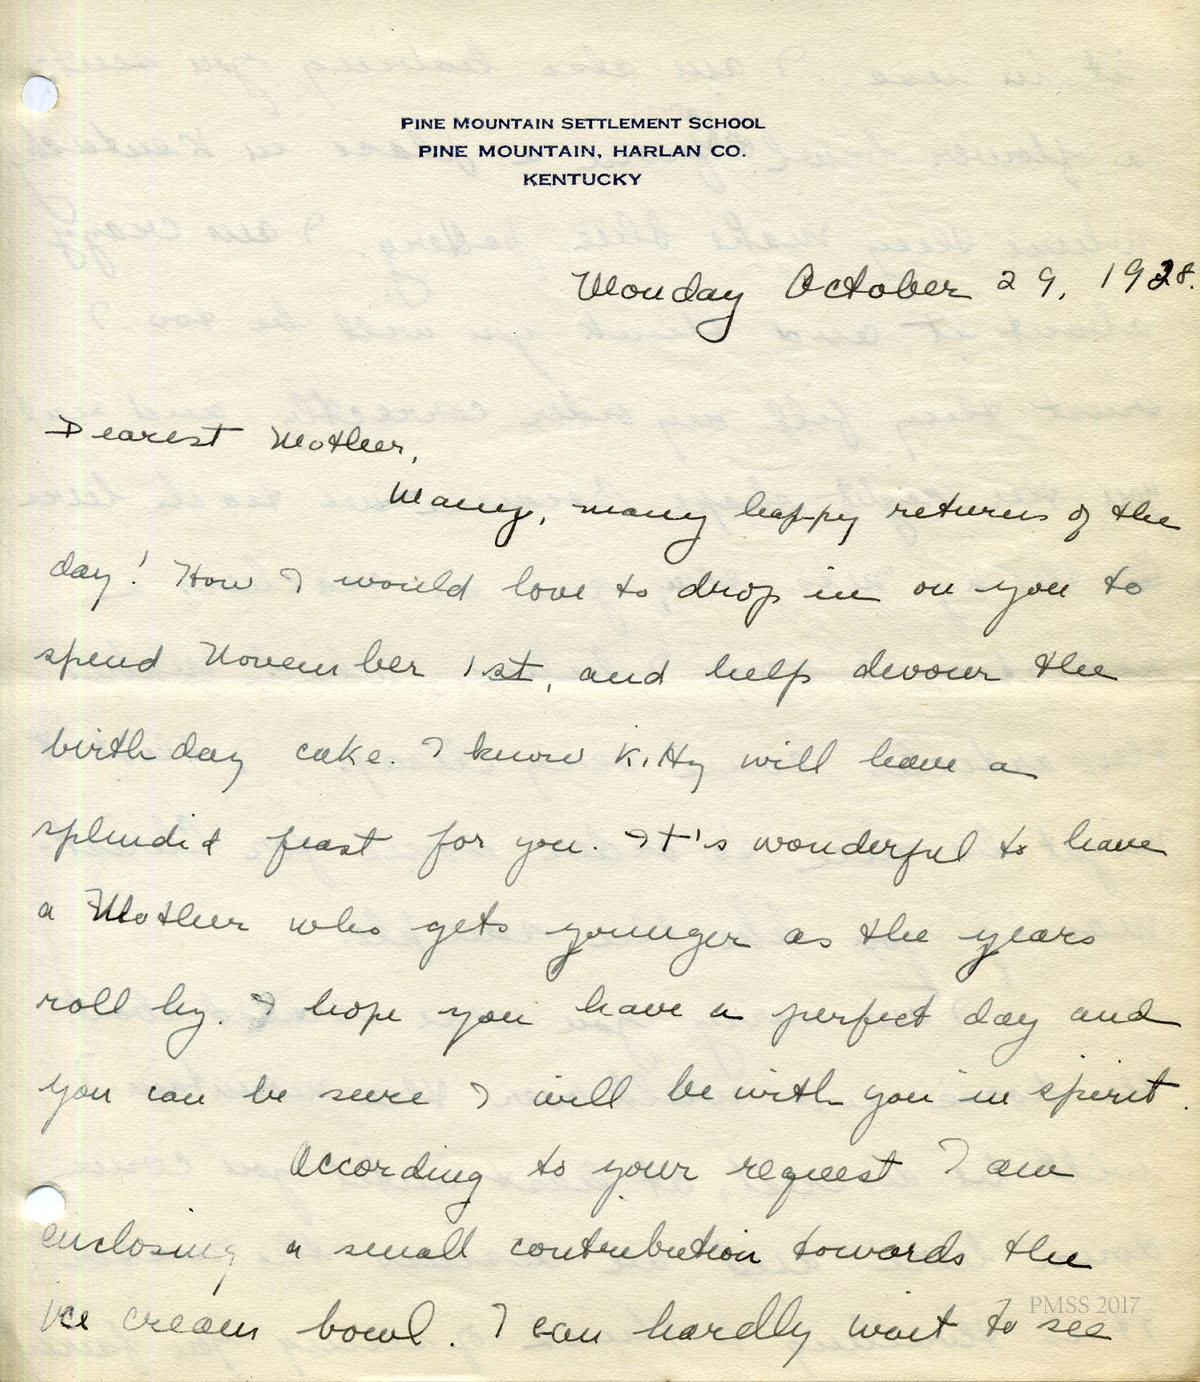 PINE MOUNTAIN SETTLEMENT SCHOOL
PINE MOUNTAIN, HARLAN CO.
KENTUCKY
Monday October 29, 1928.
Dearest Mother,
Many, many happy returns of the
day! How I would love to drop in on you to
spend November 1st, and help devour the
birthday cake. I know Kitty will have a
splendid feast for you. It's wonderful to have
a Mother who gets younger as the years
roll by. I hope you have a perfect day and
you can be sure I will be with you in spirit.
According to your request I am
enclosing a small contribution towards the
ice cream bowl. I can hardly wait to see
PMSS 2017